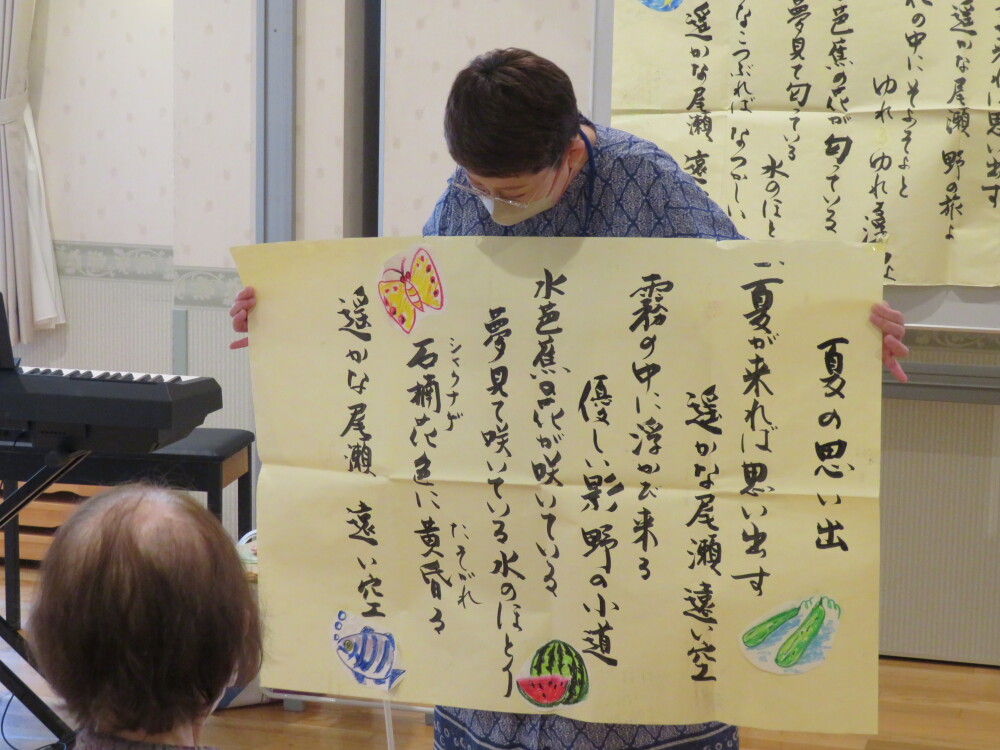 夏の思い出
一、夏が来れば思い出す
遥かな尾瀬 遠い空
霧の中に浮かび来る
優しい影 野の小道
水芭蕉の花が咲いている
夢見て咲いている水のほとり
シャクナゲ
石楠花色に黄昏る
たそがれ
遥かな尾瀬 遠い空
れば思い出す
遥かな尾瀬 野の旅よ
の中にそよそよと
ゆれ ゆれる
芭蕉の花が匂っている
夢見て匂っている 水のほと
なこつぶれば なつかしい
遥かな尾瀬 遠